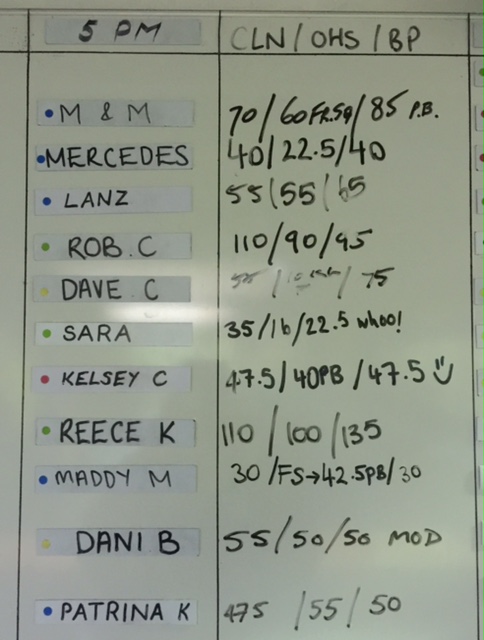 5 PM CLN/OHS/BP
M & M 70/60FR.SQ/85 P.B.
MERCEDES 40/22.5/40
LANZ 55/55/65
ROB.C 110/90/95
DAVE C / / 75
SARA 35/16/22.5 whoo!
KELSEY C 47.5/40PB/47.5
REECE K 110/100/135
MADDY M 30/FS→42.5PB/30
DANI B 55/50/50 MOD
PATRINA K 475 /55/50